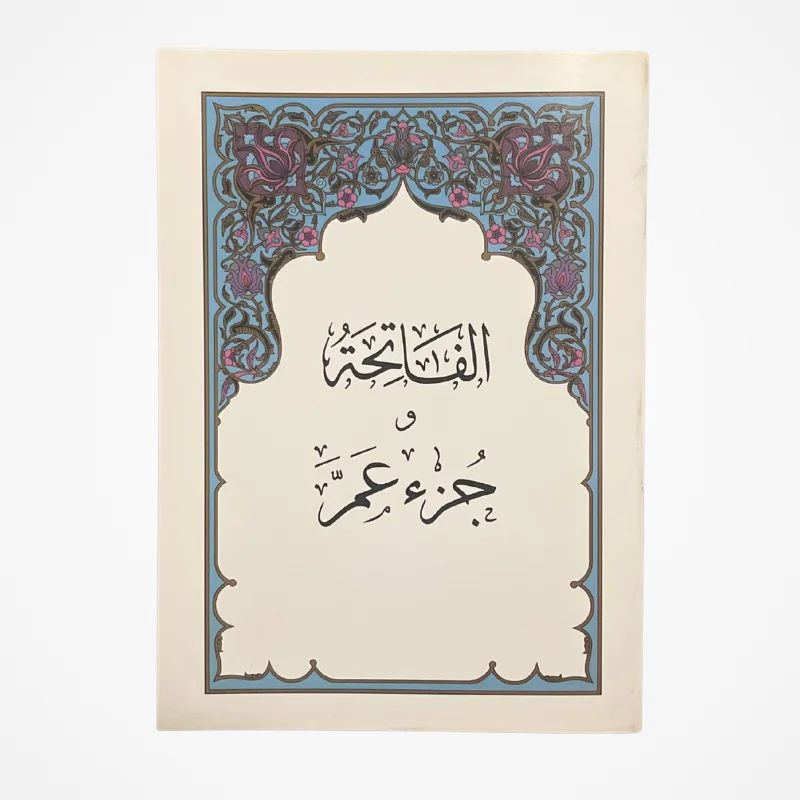 الفَاتِحَةُ
و
جُزْء عَمَّ